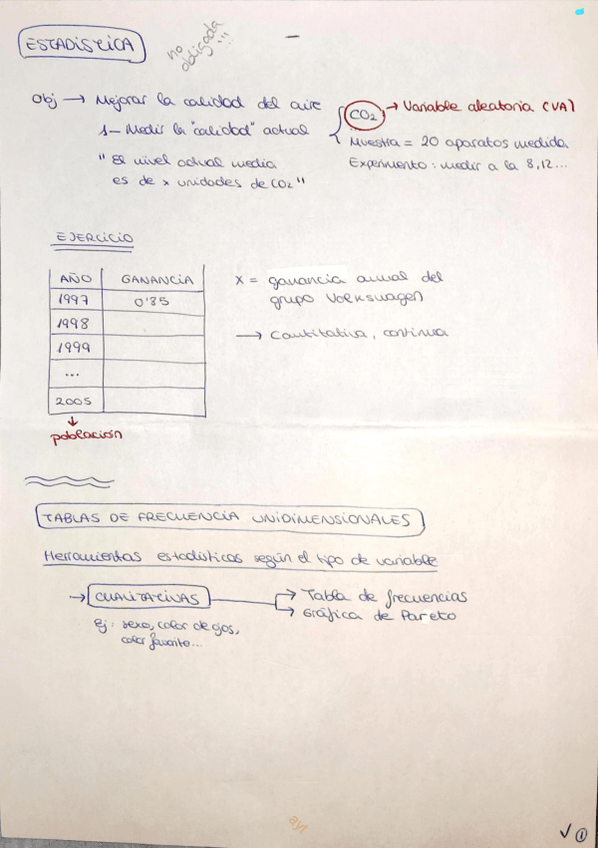 ESTADÍSTICA
no
obligada
!!!
Obj → Mejorar la calidad del aire
1- Medir la "calidad" actual
"El nivel actual media
es de x unidades de CO2"
CO2 → Variable aleatoria (VA)
Muestra = 20 aparatos medida
Experimento: medir a la 8, 12...
EJERCICIO
AÑO GANANCIA
1997 0'85
1998
1999
...
2005
↓
población
X = ganancia anual del
grupo Volkswagen
→ Cantitativa, continua
TABLAS DE FRECUENCIA UNIDIMENSIONALES
Herramientas estadísticas según el tipo de variable
→ CUALITATIVAS → Tabla de frecuencias
→ Gráfica de Pareto
Ej: sexo, color de ojos,
color favorito...
✓ 1